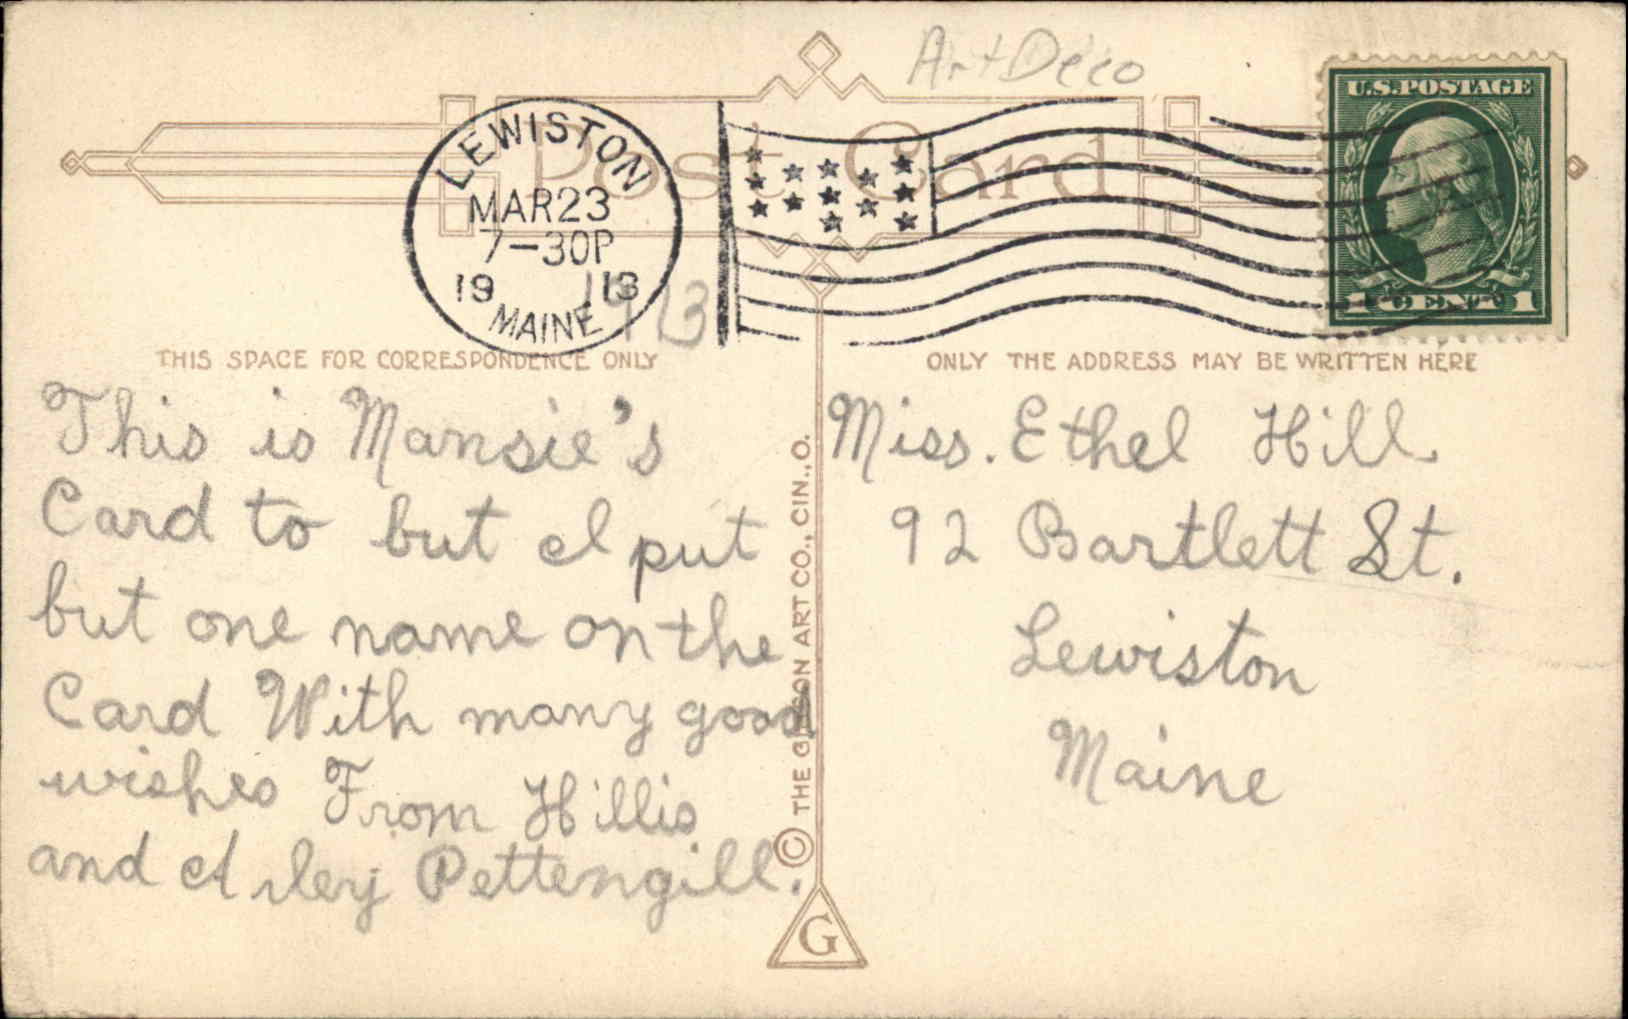 Art Deco
U.S. POSTAGE
Post Card
LEWISTON
MAR 23
7-30P
19 13
MAINE
1913
1 CENT 1
THIS SPACE FOR CORRESPONDENCE ONLY
This is Mansie's
Card to but I put
but one name on the
Card With many good
wishes From Hillis
and Arley Pettengill.
© THE GIBSON ART CO., CIN., O.
G
ONLY THE ADDRESS MAY BE WRITTEN HERE
Miss. Ethel Hill.
92 Bartlett St.
Lewiston
Maine